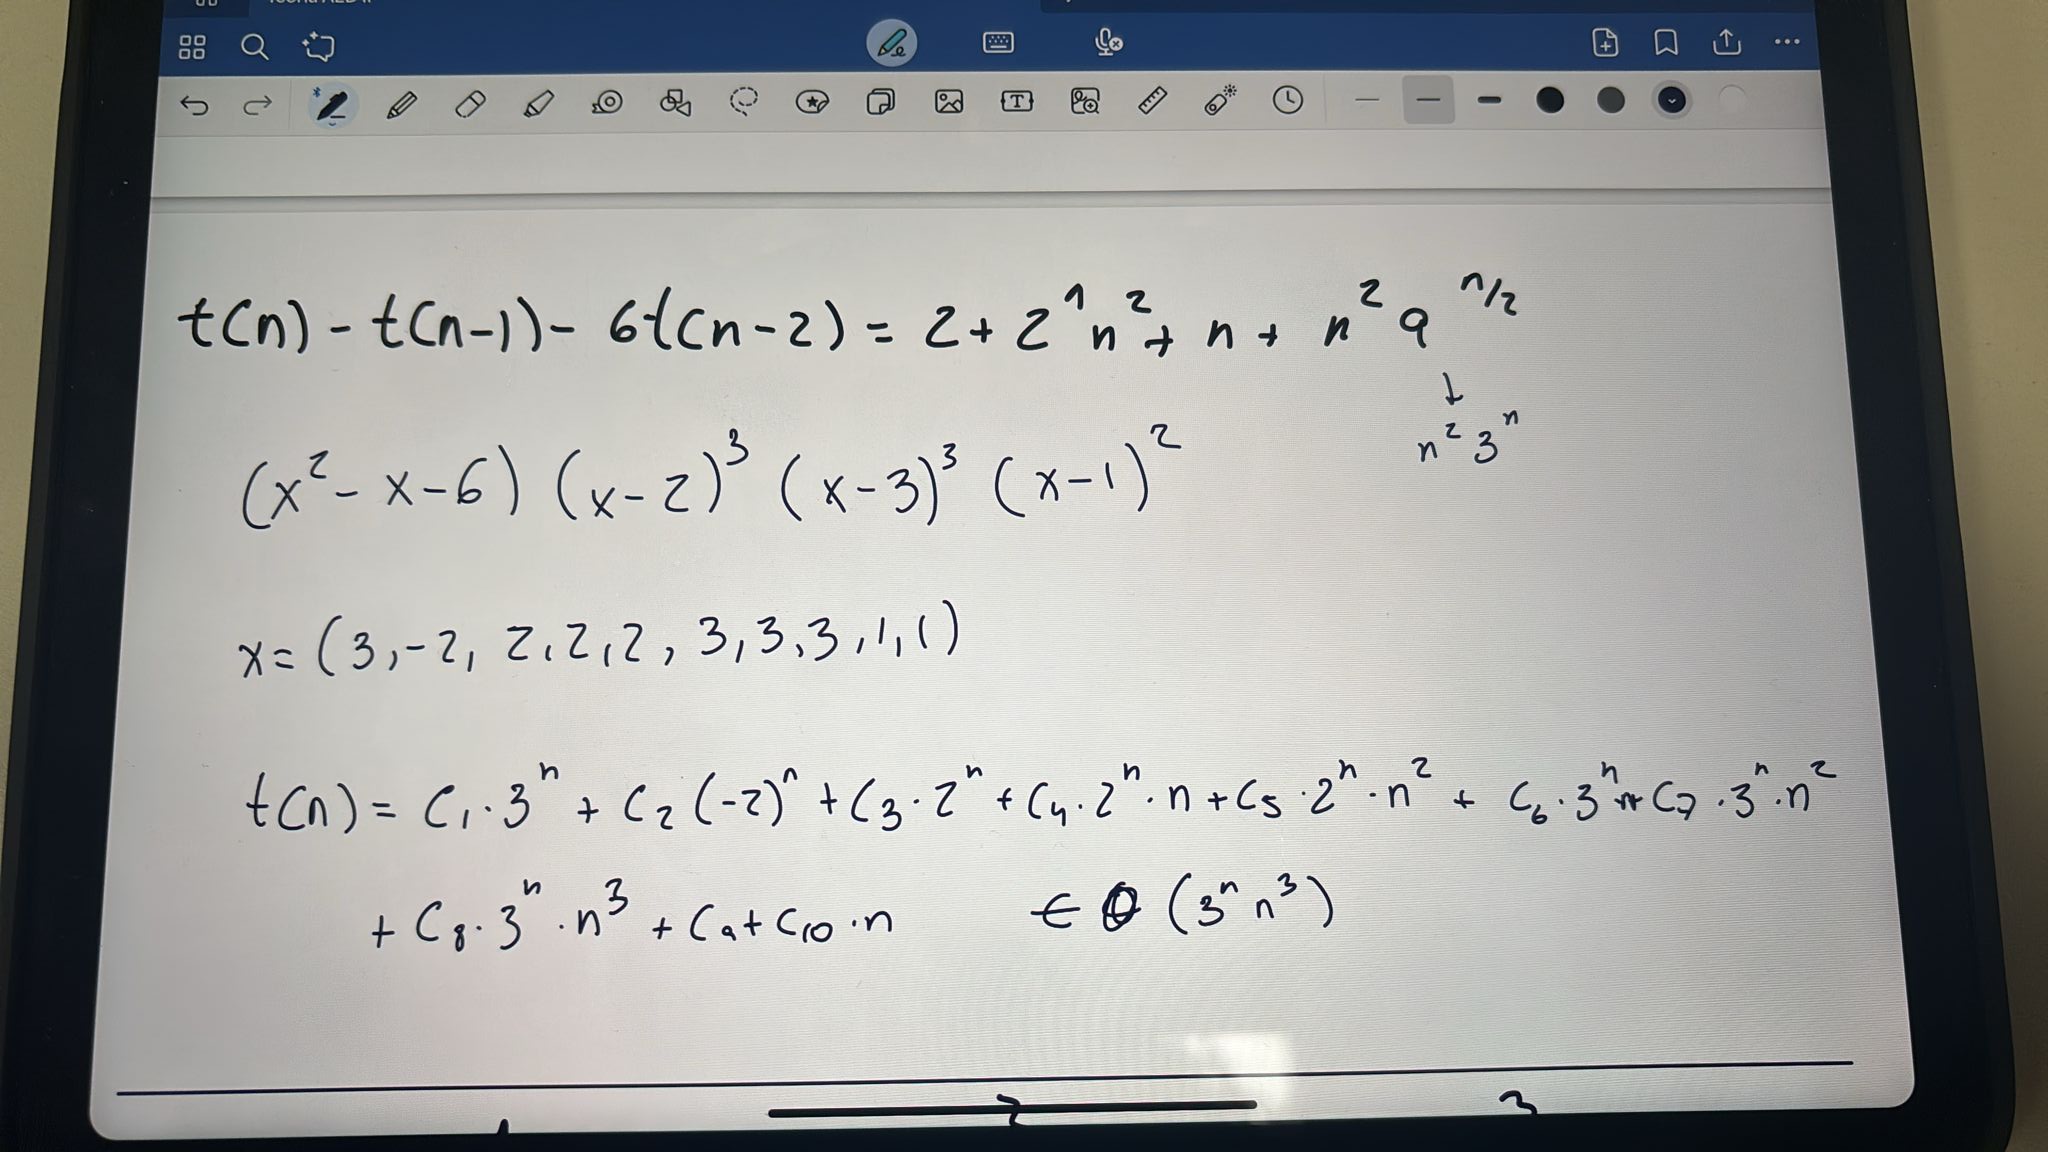 t(n) - t(n-1) - 6t(n-2) = 2 + 2ⁿn² + n + n²9^(n/2)
↓
n²3ⁿ
(x² - x - 6) (x-2)³ (x-3)³ (x-1)²
x = (3, -2, 2, 2, 2, 3, 3, 3, 1, 1)
t(n) = C₁·3ⁿ + C₂(-2)ⁿ + C₃·2ⁿ + C₄·2ⁿ·n + C₅·2ⁿ·n² + C₆·3ⁿn + C₇·3ⁿ·n²
+ C₈·3ⁿ·n³ + C₉ + C₁₀·n ∈ Θ(3ⁿn³)